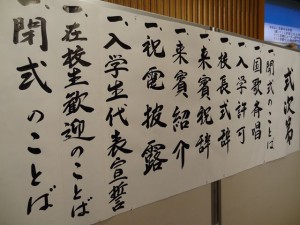 式次第
一 開式のことば
一 国歌斉唱
一 入学許可
一 校長式辞
一 来賓祝辞
一 来賓紹介
一 祝電披露
一 入学生代表宣誓
一 在校生歓迎のことば
一 閉式のことば